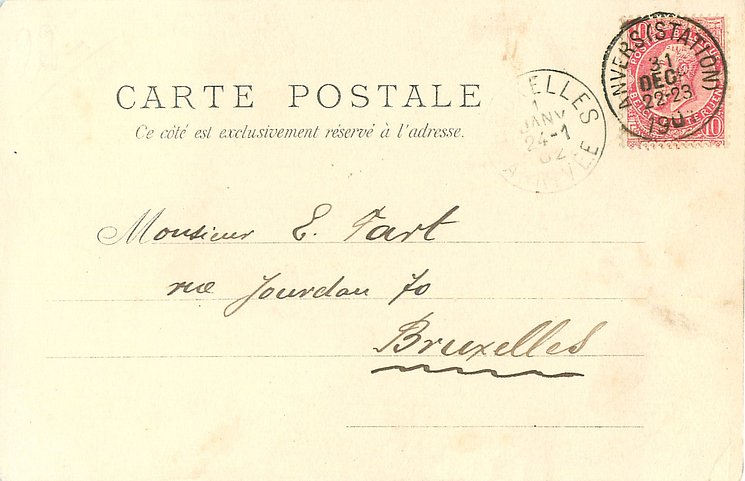 CARTE POSTALE
Ce côté est exclusivement réservé à l'adresse.
ANVERS (STATION)
31
DÉC
22-23
190
XELLES
1
JANV
24-1
02
10
Monsieur E. Tart
rue Jourdan 70
Bruxelles